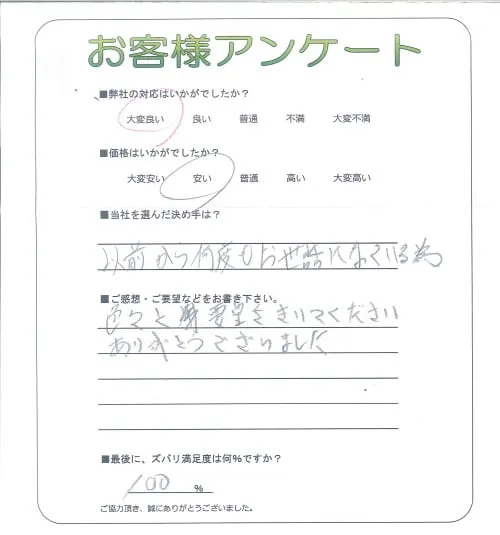 お客様アンケート
■弊社の対応はいかがでしたか？
大変良い 良い 普通 不満 大変不満
■価格はいかがでしたか？
大変安い 安い 普通 高い 大変高い
■当社を選んだ決め手は？
以前から何度もお世話になっている為
■ご感想・ご要望などをお書き下さい。
色々と 要望をきいてくださり
ありがとうございました
■最後に、ズバリ満足度は何%ですか？
100 %
ご協力頂き、誠にありがとうございました。